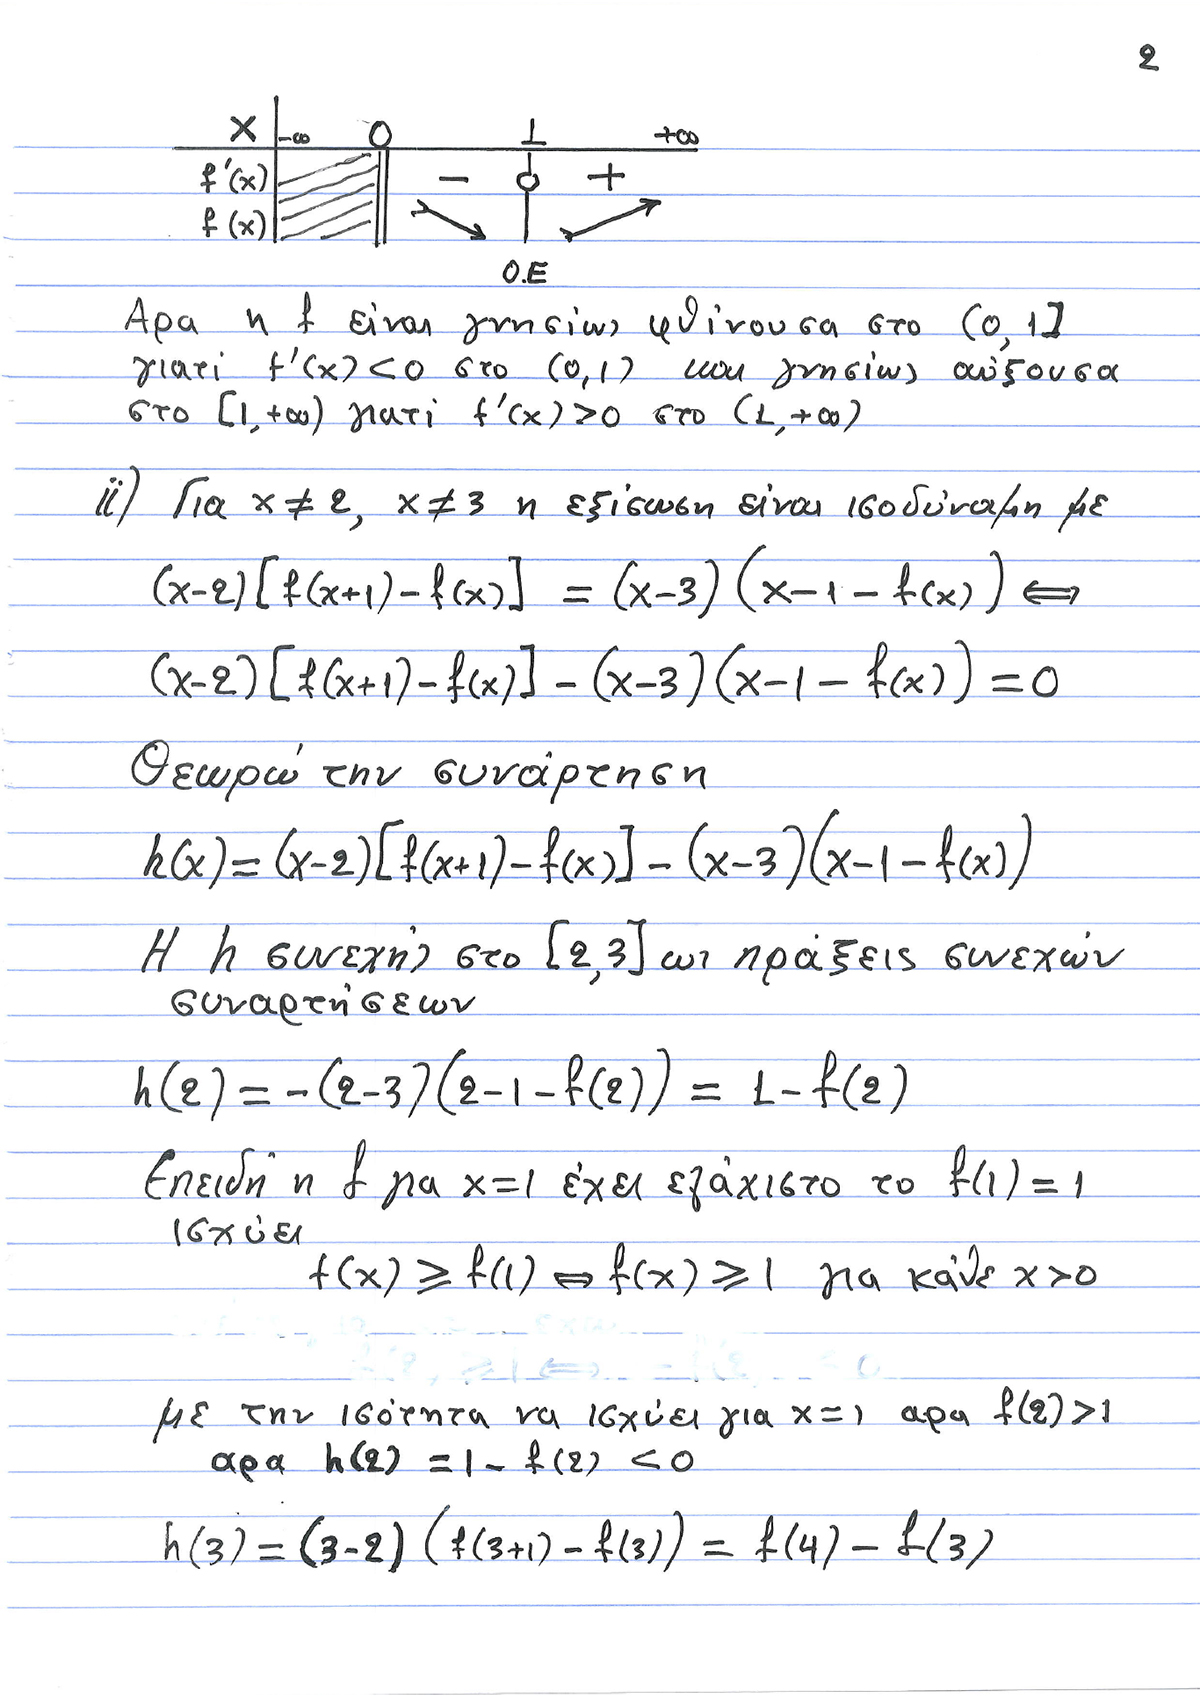 2
x -∞ 0 1 +∞
f'(x) - 0 +
f(x)
O.E
Αρα η f είναι γνησίως φθίνουσα στο (0,1]
γιατί f'(x)<0 στο (0,1) και γνησίως αύξουσα
στο [1,+∞) γιατί f'(x)>0 στο (1,+∞)
ii) Για x≠2, x≠3 η εξίσωση είναι ισοδύναμη με
(x-2)[f(x+1)-f(x)] = (x-3)(x-1-f(x)) ⇔
(x-2)[f(x+1)-f(x)] - (x-3)(x-1-f(x)) = 0
Θεωρώ την συνάρτηση
h(x) = (x-2)[f(x+1)-f(x)] - (x-3)(x-1-f(x))
Η h συνεχής στο [2,3] ως πράξεις συνεχών
συναρτήσεων
h(2) = -(2-3)(2-1-f(2)) = 1-f(2)
Επειδή η f για x=1 έχει ελάχιστο το f(1)=1
ισχύει
f(x) ≥ f(1) ⇔ f(x) ≥ 1 για κάθε x>0
με την ισότητα να ισχύει για x=1 αρα f(2)>1
αρα h(2) = 1- f(2) < 0
h(3) = (3-2) (f(3+1) - f(3)) = f(4) - f(3)